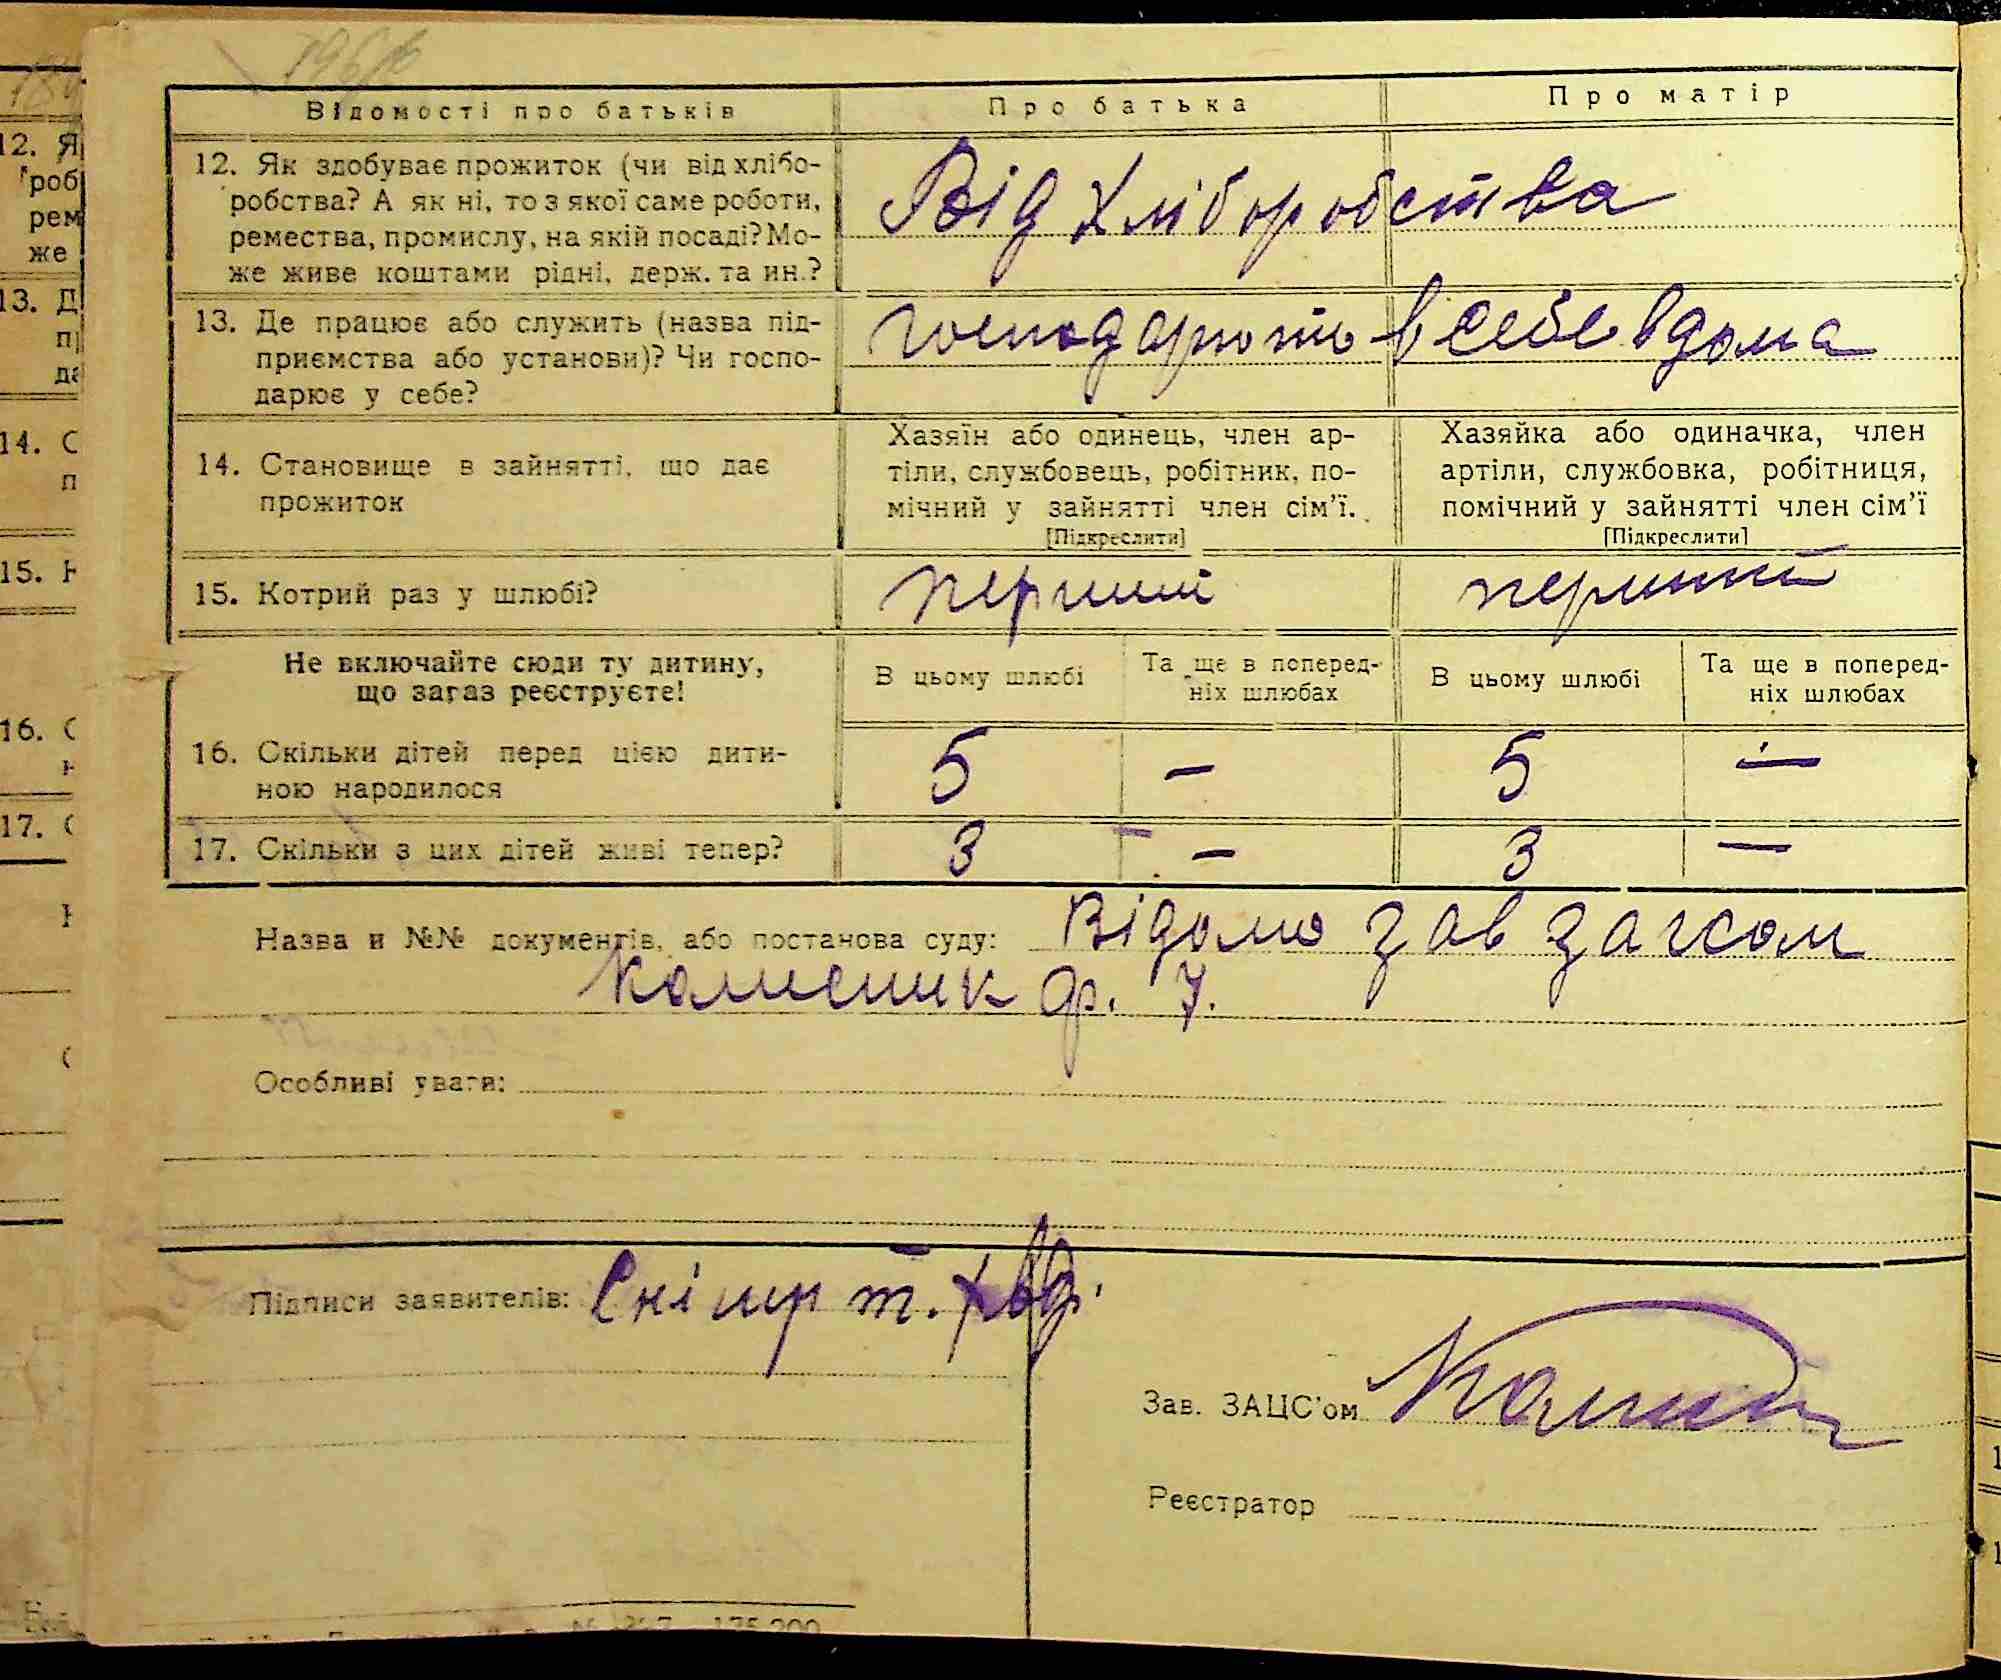 Відомості про батьків
Про батька
Про матір
12. Як здобуває прожиток (чи від хлібо-
робства? А як ні, то з якої саме роботи,
ремества, промислу, на якій посаді? Мо-
же живе коштами рідні, держ. та ин.?
Від хліборобства
13. Де працює або служить (назва під-
приємства або установи)? Чи госпо-
дарює у себе?
господарють в себе вдома
14. Становище в зайнятті, що дає
прожиток
Хазяїн або одинець, член ар-
тіли, службовець, робітник, по-
мічний у зайнятті член сім'ї.
[Підкреслити]
Хазяйка або одиначка, член
артіли, службовка, робітниця,
помічний у зайнятті член сім'ї
[Підкреслити]
15. Котрий раз у шлюбі?
перший
перший
Не включайте сюди ту дитину,
що зараз реєструєте!
В цьому шлюбі
Та ще в поперед-
ніх шлюбах
В цьому шлюбі
Та ще в поперед-
ніх шлюбах
16. Скільки дітей перед цією дити-
ною народилося
5 — 5 —
17. Скільки з цих дітей живі тепер?
3 — 3 —
Назва и №№ документів, або постанова суду: Відомо зав загсом
Колисник ф. 7.
Особливі уваги:
Підписи заявителів:
Зав. ЗАЦС'ом
Реєстратор
175.200
12. Я
роб
рем
же
13. Д
п
да
14. С
п
15.
16. С
17. С